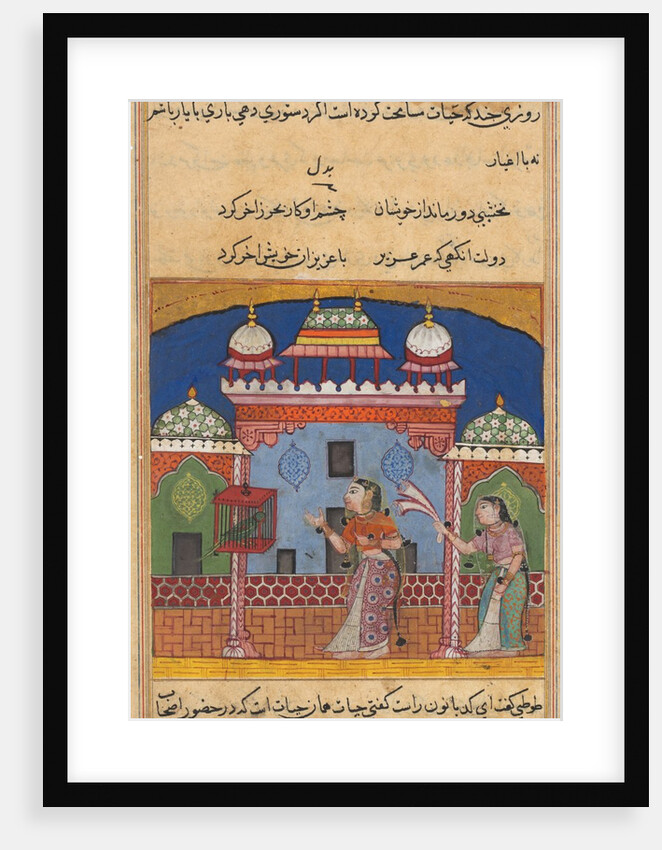 روزي چند که حیات سامحت کوده است اکر دستوري دهي باري با یار باشم
نه با اغیار
نخشبي دور ماند از خویشان چشم او کار بحر زاخر کرد
دولت انکهي که عمر عزیز با عزیزان خویش اخر کرد
طوطي کفت اي کدبانو راست کفتي حیات همان حیات است که در حضور اصحاب